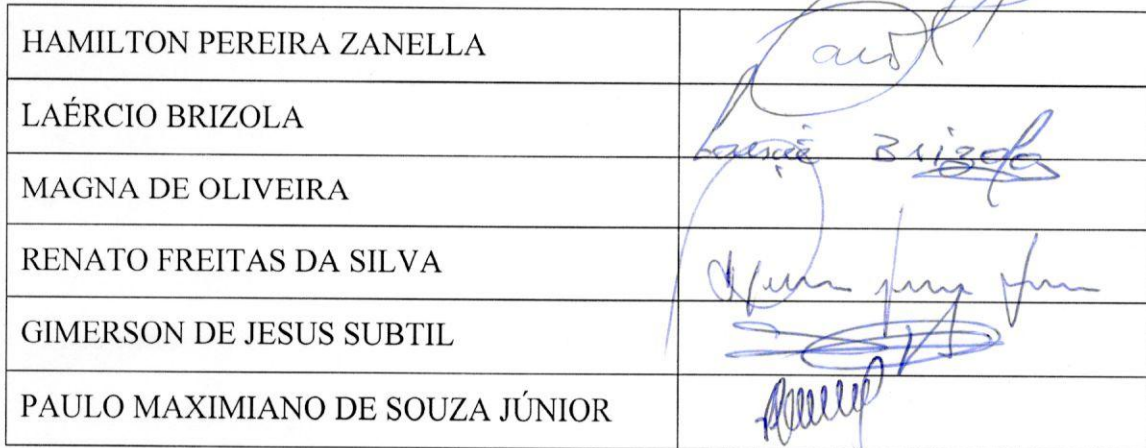 HAMILTON PEREIRA ZANELLA
LAÉRCIO BRIZOLA Brizola
MAGNA DE OLIVEIRA
RENATO FREITAS DA SILVA
GIMERSON DE JESUS SUBTIL
PAULO MAXIMIANO DE SOUZA JÚNIOR